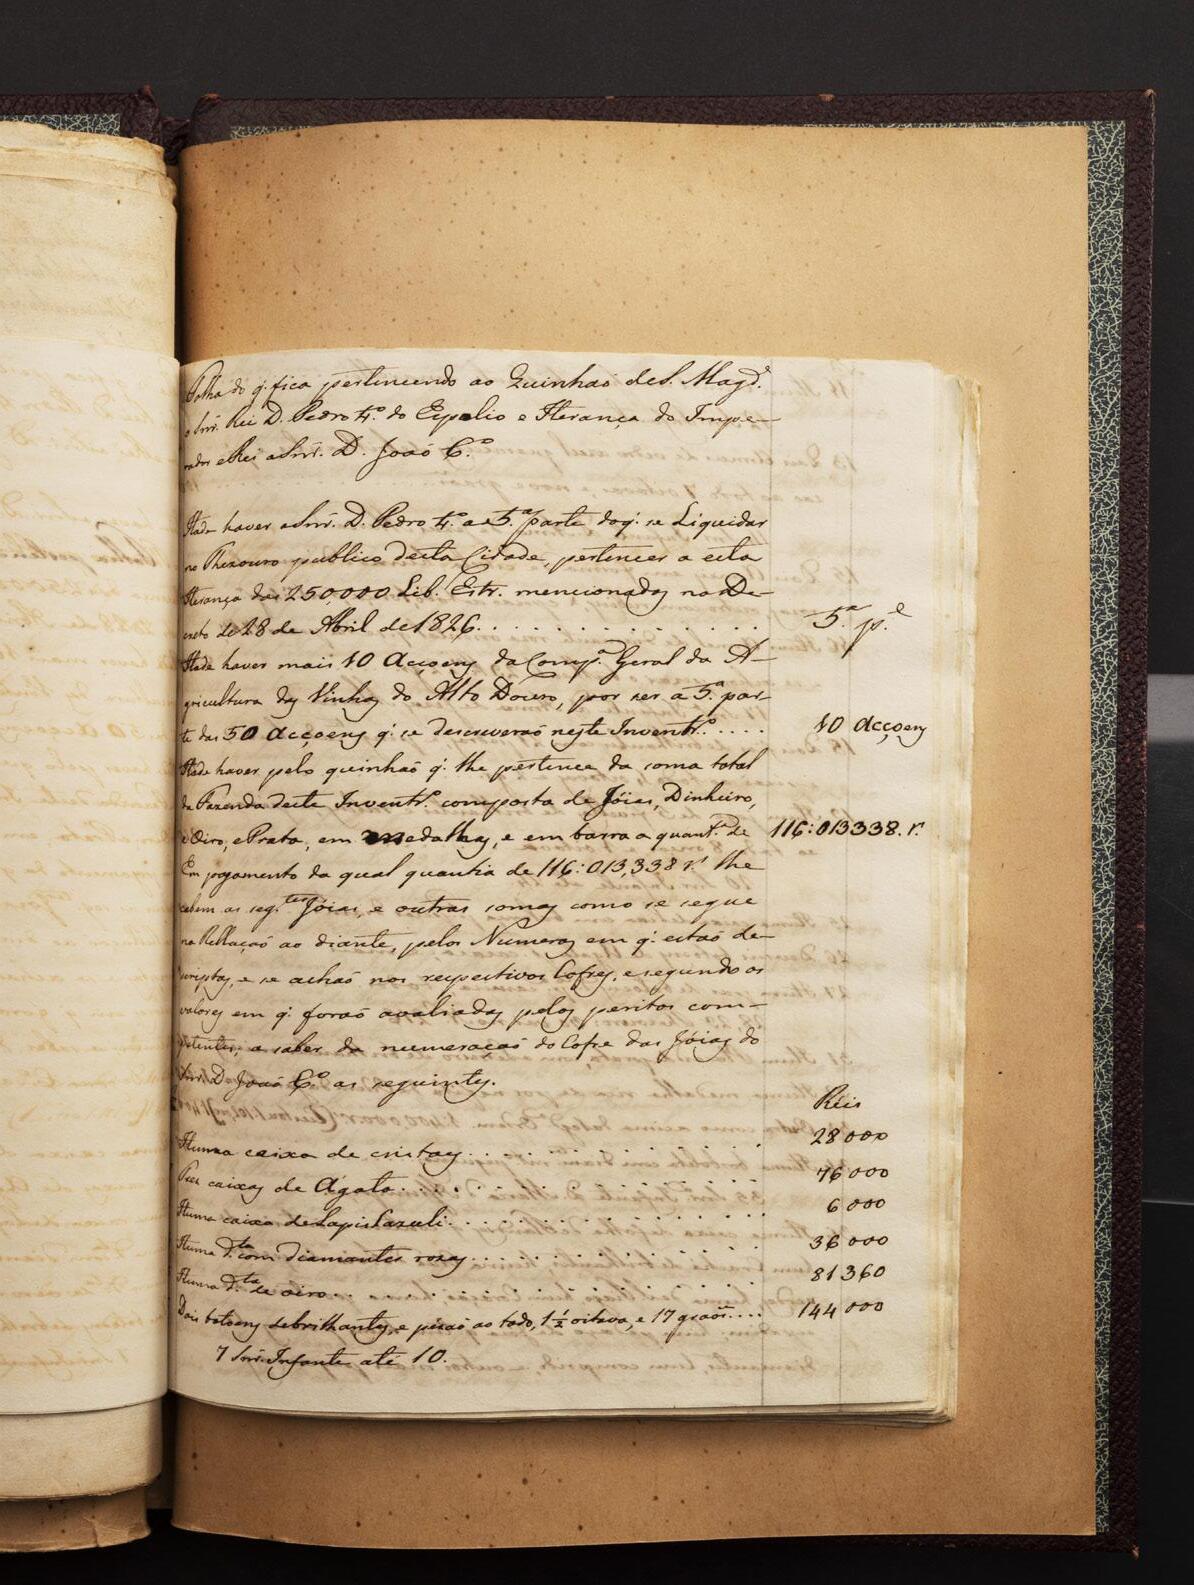 Folha do q̃. fica pertencendo ao Quinhaõ de S. Magd.ᵉ
o Snr̃. Rei D. Pedro 4.º do Espolio e Herança do Impe-
rador e Rei o Snr̃. D. Joaõ 6.º
Hade haver o Snr̃. D. Pedro 4.º a 5.ª parte do q̃. se Liquidar
no Thezouro publico desta Cidade, pertencer a esta
Herança das 250,000 Lib. Estr. mencionadas no De-
creto de 28 de Abril de 1826. 5.ª p.ᵉ
Hade haver mais 10 Acçoens da Comp.ª Geral da A-
gricultura das Vinhas do Alto Douro, por ser a 5.ª par-
te das 50 Acçoens q̃. se descreveraõ neste Inventr.º.... 10 Acçoens
Hade haver pelo quinhaõ q̃. lhe pertence da soma total
da Fazenda deste Inventr.º composta de Jóias, Dinheiro,
e Oiro, e Prata, em medalhas, e em barra a quant.ª de 116:013338. r.ˢ
Em pagamento da qual quantia de 116:013,338 r.ˢ lhe
cabem as seg.ᵗᵉˢ Jóias, e outras somas como se segue
na Rellaçaõ ao diante, pelos Numeros em q̃. estaõ de-
scriptas, e se achaõ nos respectivos Cofres, e segundo os
valores em q̃. foraõ avaliadas pelos peritos com-
petentes, a saber da numeraçaõ do Cofre das Jóias do
Snr̃. D. Joaõ 6.º as seguintes.
Réis
Huma caixa de cristas 28000
Tres caixas de Agata 76000
Huma caixa de Lapis Lazuli 6000
Huma d.ᵗᵃ com diamantes rosas 36000
Huma d.ᵗᵃ de oiro 81360
Dois botoens de brilhantes, e pezaõ ao todo, 1½ oitava, e 17 graõs.... 144000
7 Snr̃. Infante até 10.